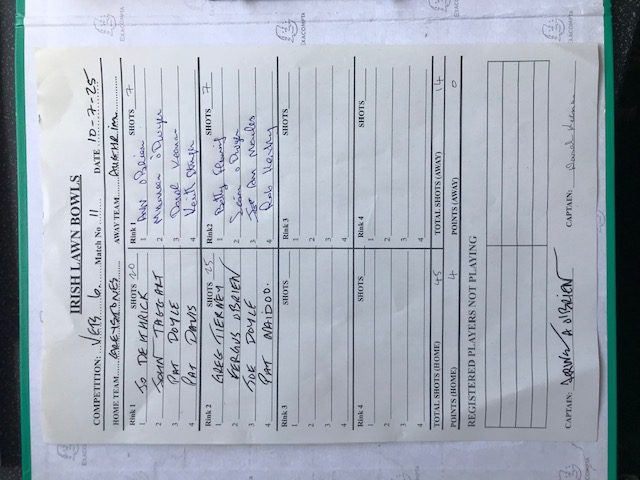 IRISH LAWN BOWLS
COMPETITION: VETS 6 Match No 11 DATE 10-7-25
HOME TEAM GREYSTONES AWAY TEAM AUGHRIM
Rink 1 SHOTS 20 Rink 1 SHOTS 7
1 JO DETHRICK 1 O'Brien
2 SEAN TAGGART 2 Maureen O'Dwyer
3 PAT DOYLE 3 Daral Keenan
4 PAT DAVIS 4 Keith
Rink 2 SHOTS 25 Rink2 SHOTS 7
1 GREG TIERNEY 1 Betty Fleming
2 FERGUS O'BRIEN 2 Sean O'Dwyer
3 JOE DOYLE 3 Ann
4 PAT NAIDOO. 4 Rob
Rink3 SHOTS Rink 3 SHOTS
1 1
2 2
3 3
4 4
Rink 4 SHOTS Rink4 SHOTS
1 1
2 2
3 3
4 4
TOTAL SHOTS (HOME) 45 TOTAL SHOTS (AWAY) 14
POINTS (HOME) 4 POINTS (AWAY) 0
REGISTERED PLAYERS NOT PLAYING
CAPTAIN: A O'BRIEN CAPTAIN: Keenan
EXACOMPTA